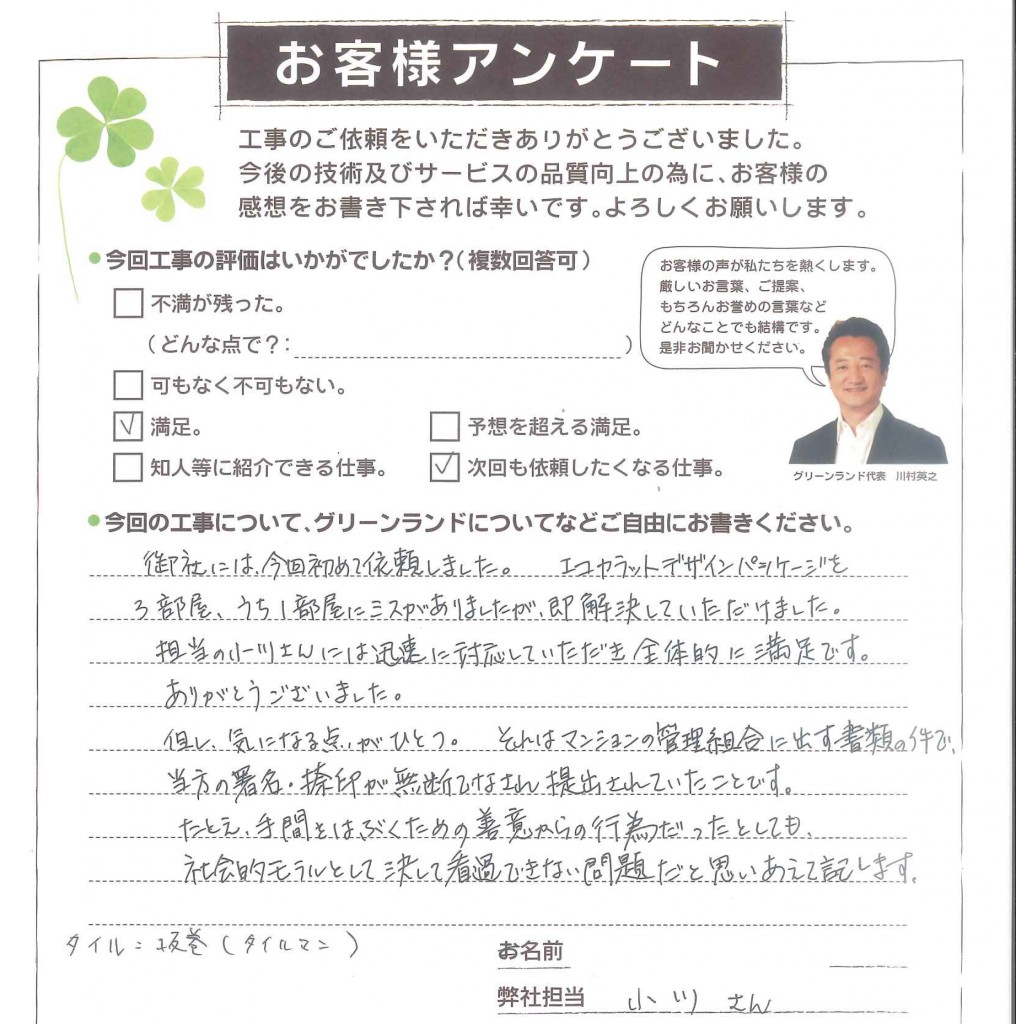 お客様アンケート
工事のご依頼をいただきありがとうございました。
今後の技術及びサービスの品質向上の為に、お客様の
感想をお書き下されば幸いです。よろしくお願いします。
今回工事の評価はいかがでしたか？（複数回答可）
不満が残った。
（どんな点で？：）
可もなく不可もない。
満足。
予想を超える満足。
知人等に紹介できる仕事。
次回も依頼したくなる仕事。
お客様の声が私たちを熱くします。
厳しいお言葉、ご提案、
もちろんお誉めの言葉など
どんなことでも結構です。
是非お聞かせください。
グリーンランド代表　川村英之
今回の工事について、グリーンランドについてなどご自由にお書きください。
御社には、今回初めて依頼しました。　エコカラットデザインパッケージを
3部屋、うち1部屋にミスがありましたが、即解決していただけました。
担当の小川さんには迅速に対応していただき全体的に満足です。
ありがとうございました。
但し、気になる点がひとつ。　それはマンションの管理組合に出す書類の件で、
当方の署名・捺印が無断でなされ提出されていたことです。
たとえ、手間をはぶくための善意からの行為だったとしても、
社会的モラルとして決して看過できない問題だと思いあえて記します。
タイル：坂巻（タイルマン）
お名前
弊社担当　小川さん